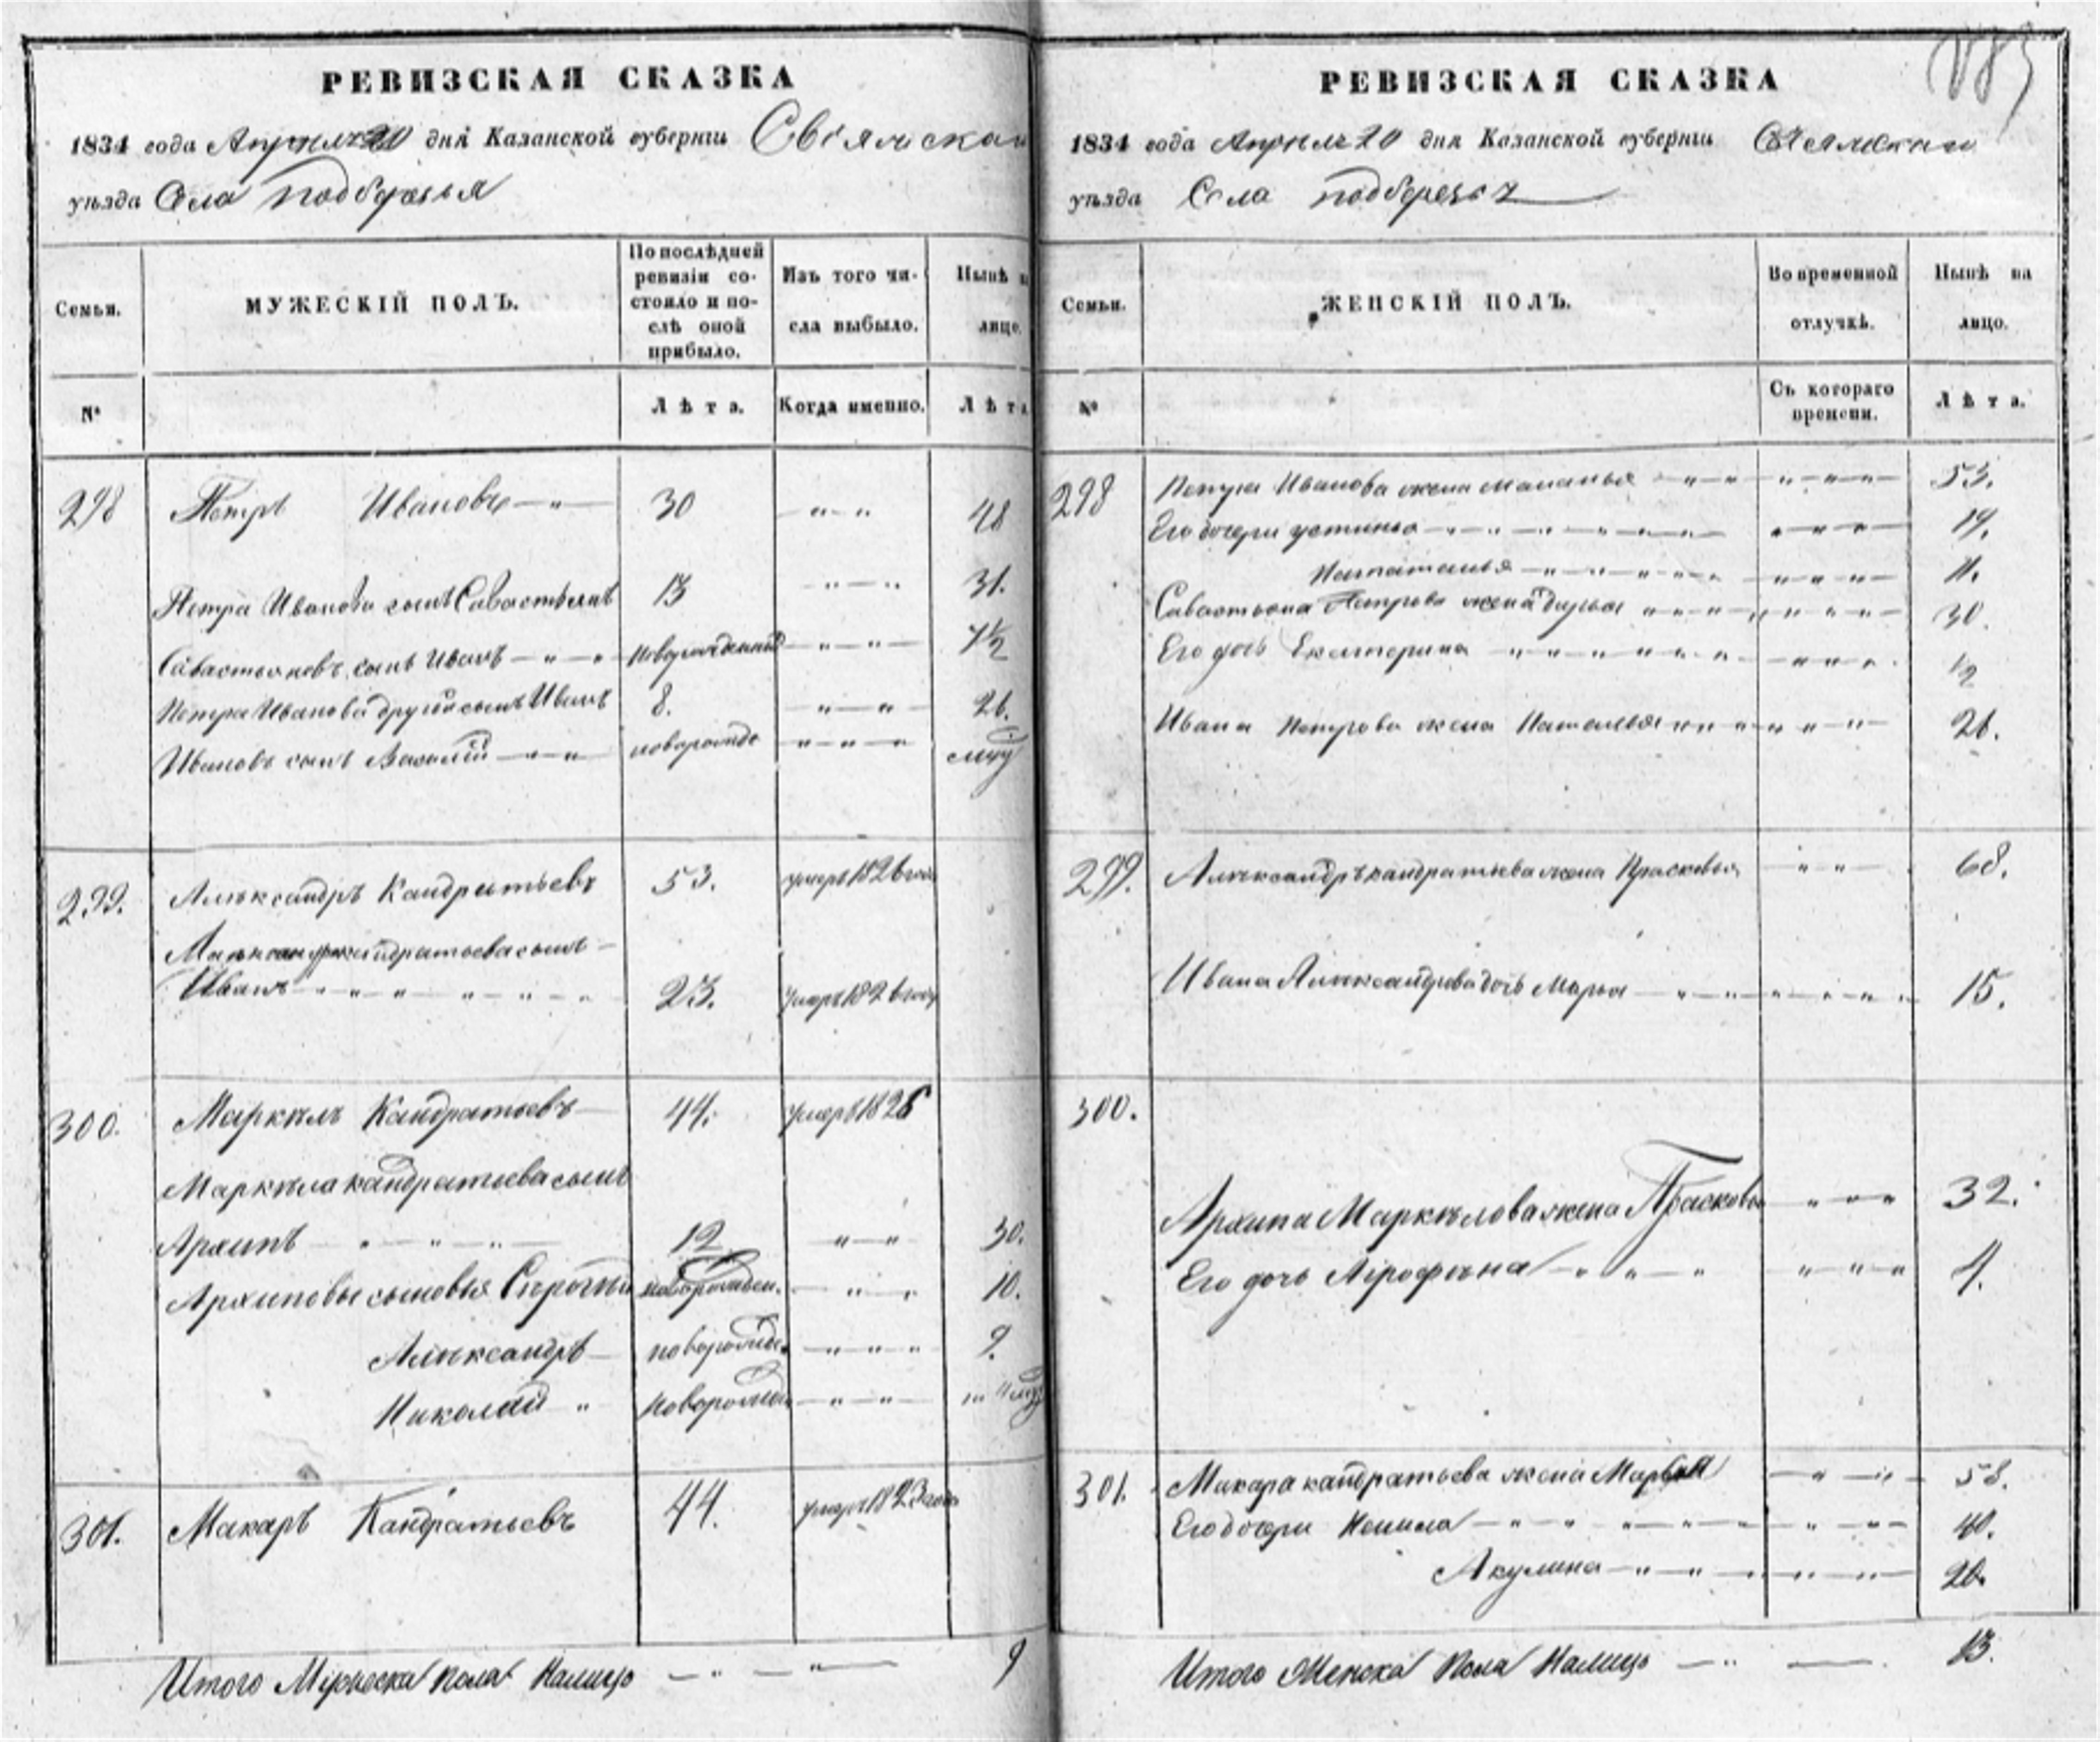 РЕВИЗСКАЯ СКАЗКА
1834 года Апреля 20 дня Казанской губернiи Свiяжскаго
уѣзда Села подберезья
Семьи.
МУЖЕСКIЙ ПОЛЪ.
По послѣдней ревизiи состояло и послѣ оной прибыло.
Изъ того числа выбыло.
Нынѣ на лицо.
№
Лѣта.
Когда именно.
Лѣта
298 Петръ Ивановъ 30 48
Петра Иванова сынъ Савастьянъ 13 31.
Савастьяновъ сынъ Иванъ новорожденный 7½
Петра Иванова другой сынъ Иванъ 8. 26.
Ивановъ сынъ Василiй новорожде
299. Алѣксандръ Кандратьевъ 53. умеръ 1826 году
кандратьева сынъ
Иванъ 23. умеръ 1826 году
300. Маркѣлъ Кандратьевъ 44. умеръ 1826
Маркѣла кандратьева сынъ
Архипъ 12 30.
Архиповы сыновья новорожден. 10.
Алѣксандръ новорожде. 9.
Николай новорожден
301. Макаръ Кандратьевъ 44. умеръ 1823 году
Итого Мужеска пола Налицо 9
РЕВИЗСКАЯ СКАЗКА
1834 года Апреля 20 дня Казанской губернiи Свiяжскаго
уѣзда Села подберезья
Семьи.
ЖЕНСКIЙ ПОЛЪ.
Во временной отлучкѣ.
Нынѣ на лицо.
№
Съ котораго времени.
Лѣта.
298 Петра Иванова жена Маланья 53.
Его дочери устинья 19.
Наталья 11.
Савастьяна Петрова жена Дарья 30.
Его дочь Екатерина ½
Ивана Петрова жена Наталья 26.
299. Алѣксандръ кандратьева жена Прасковья 68.
Ивана Алѣксандрова дочь Марья 15.
300.
Архипа Маркѣлова жена Прасковья 32.
Его дочь Агрофѣна 4.
301. Макара кандратьева жена Марья 58.
Его дочери Ненила 40.
Акулина 20.
Итого Женска Пола Налицо 13.